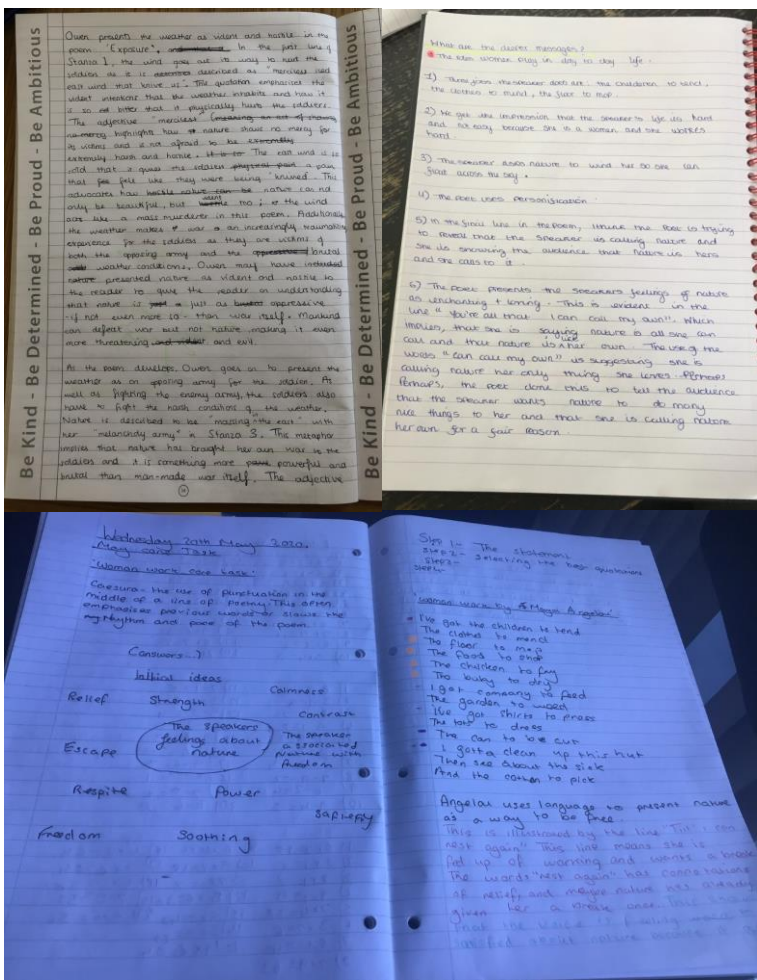 Be Kind - Be Determined - Be Proud - Be Ambitious
Owen presents the weather as violent and hostile in the
poem "Exposure". In the first line of
Stanza 1, the wind goes out its way to hurt the
soldiers as it is described as "merciless iced
east wind that knive us". This quotation emphasises the
violent intentions that the weather inhabits and how it
is so bitter that it physically hurts the soldiers.
The adjective "merciless"
highlights how nature shows no mercy for
its victims and is not afraid to be
extremely harsh and hostile. The east wind is so
cold that it gives the soldiers a pain
that felt like they were being "knived". This
advocates how nature can not
only be beautiful, but too; the wind
acts like a mass murderer in this poem. Additionally
the weather makes war an increasingly traumatising
experience for the soldiers as they are victims of
both the opposing army and the brutal
weather conditions. Owen may have
presented nature as violent and hostile to
the reader to give the reader an understanding
that nature is just as oppressive
- if not even more so - than war itself. Mankind
can defeat war but not nature, making it even
more threatening and evil.
As the poem develops, Owen goes on to present the
weather as an opposing army for the soldiers. As
well as fighting the enemy army, the soldiers also
have to fight the harsh conditions of the weather.
Nature is described to be "massing in the east" with
her "melancholy army" in Stanza 3. This metaphor
implies that nature has brought her own war to the
soldiers and it is something more powerful and
brutal than man-made war itself. The adjective
Be Kind - Be Determined - Be Proud - Be Ambitious
What are the messages?
The women play in day to day life.
1) the speaker does are: the children to tend,
the clothes to mend, the floor to mop.
2) We get the impression that the speaker's life is hard
and not easy because she is a woman and she works
hard.
3) The speaker asks nature to wind her so she can
float across the sky.
4) The poet uses personification.
5) In the final line in the poem, I think the poet is trying
to reveal that the speaker is calling nature and
she is showing the audience that nature is hers
and she calls to it.
6) The poet presents the speakers feelings of nature
as enchanting + loving. This is evident in the
line "You're all that I can call my own". Which
implies, that she is saying nature is all she can
call and that nature is like her own. The use of the
words "can call my own" is suggesting she is
calling nature her only thing she loves.
Perhaps, the poet done this to tell the audience
that the speaker wants nature to do many
nice things to her and that she is calling nature
her own for a fair reason.
Wednesday 20th May 2020.
May core Task
'Woman work core task'
Caesura - the use of punctuation in the
middle of a line of poetry. This often
emphasises previous words or
rhythm and pace of the poem.
(answers..)
Initial ideas
Relief
Strength
Calmness
Contrast
The speakers
feelings about
nature
The speaker
associated
nature with
freedom
Escape
Respite
Power
Freedom
Soothing
Step 1 - The statement
Step 2 - Selecting the best quotations
Step 3 -
Step 4 -
'Woman work by Maya Angelou'
I've got the children to tend
The clothes to mend
The floor to mop
The food to shop
The chicken to fry
The baby to dry
I got company to feed
The garden to weed
I've got shirts to press
The tots to dress
The can to be cut
I gotta clean up this hut
Then see about the sick
And the cotton to pick
Angelou uses language to present nature
as a way to be free.
This is illustrated by the line "Till I can
rest again" This line means she is
fed up of working and wants a break
The words "rest again" has connotations
of relief, and maybe nature has already
given her a break once.